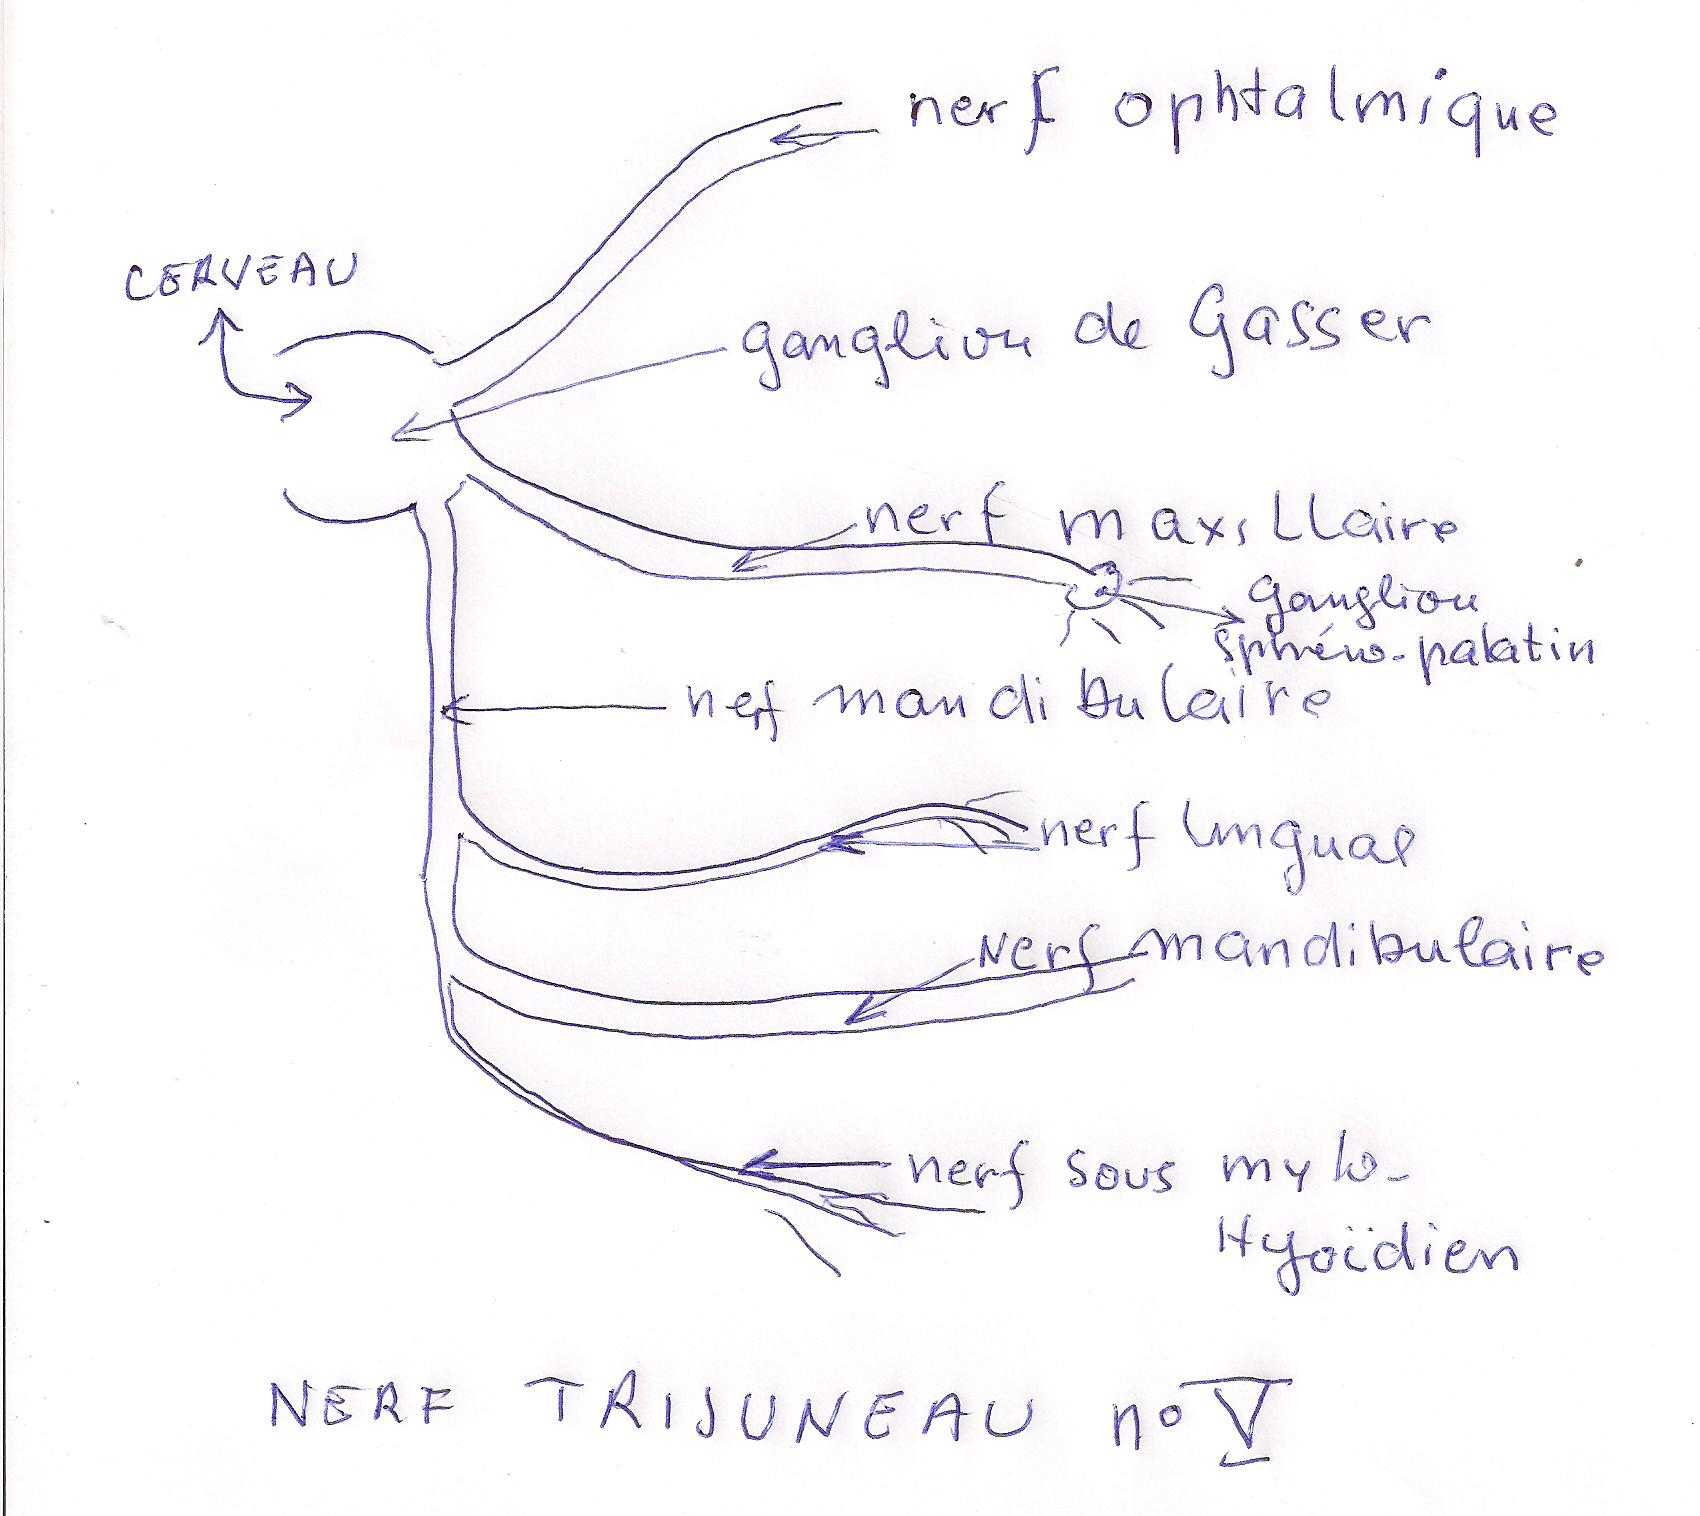 nerf ophtalmique
CERVEAU
ganglion de Gasser
nerf maxillaire
ganglion
sphéno-palatin
nerf mandibulaire
nerf lingual
Nerf mandibulaire
nerf sous mylo-
Hyoïdien
NERF TRIJUNEAU no V